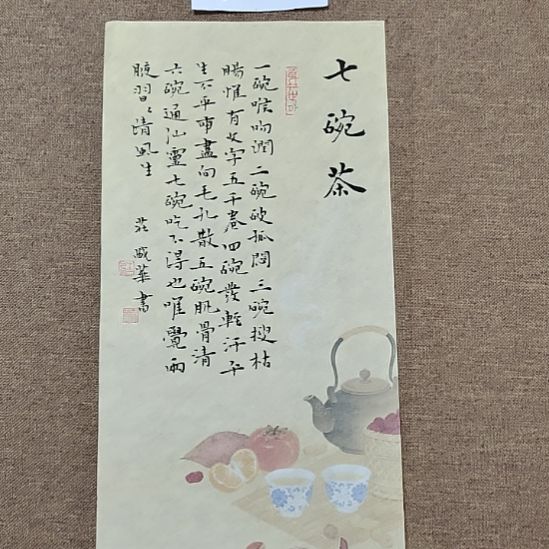 七碗茶
一碗喉吻潤二碗破孤悶三碗搜枯
腸惟有文字五千卷四碗發輕汗平
生不平事盡向毛孔散五碗肌骨清
六碗通仙靈七碗吃不得也唯覺兩
腋習習清風生
莊盛華書